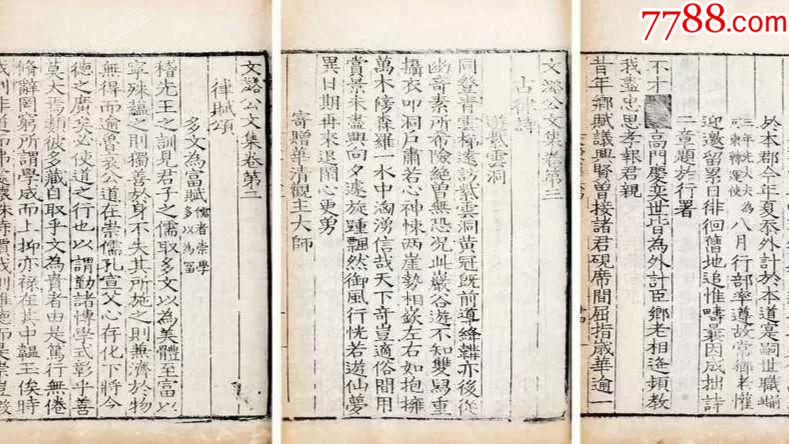 7788.com
文潞公文集卷第二
律賦頌
多文為富賦 儒者崇學多以為富
稽先王之訓見君子之儒取多文以為美體至富以
寧殊蘊之則獨善於身不失其所施之則兼濟於物
無得而逾魯哀公道在崇儒孔宣父心存化下將令
德之廣矣必使道之行也以謂勤諸愽學式彰乎善
莫大焉類彼多藏自取乎文為貴者由是篤行無倦
脩辭罔窮所謂學威而上抑亦祿在其中韞玉俟時
文潞公文集卷第三
古律詩
遊紫雲洞
同登青雲梯遠訪紫雲洞黃冠旣前導絳韝亦後從
幽奇素所希險絕曽無恐况此巖谷遊不知雙舄重
攝衣叩洞戶肅若心神悚两崖勢相嶔左右如抱擁
萬木陵森羅一水中洶湧信哉天下竒豈適俗間用
賞景未盡興向夕遽旋踵飄然御風行恍若遊仙夢
異日期再來退閣心更勇
寄贈華清觀主大師
於本郡今年夏忝外計於本道袞嗣世職緬
八月行部率遵故常鄉老懽
迎邀留累日徘徊舊地追惟疇曩因成拙詩
二章題於行署
不才高門慶奕世皆為外計臣鄉老相逢頻教
我盡忠思孝報君親
昔年鄉賦議興賢曽接諸君硯席間屈指歲華逾一